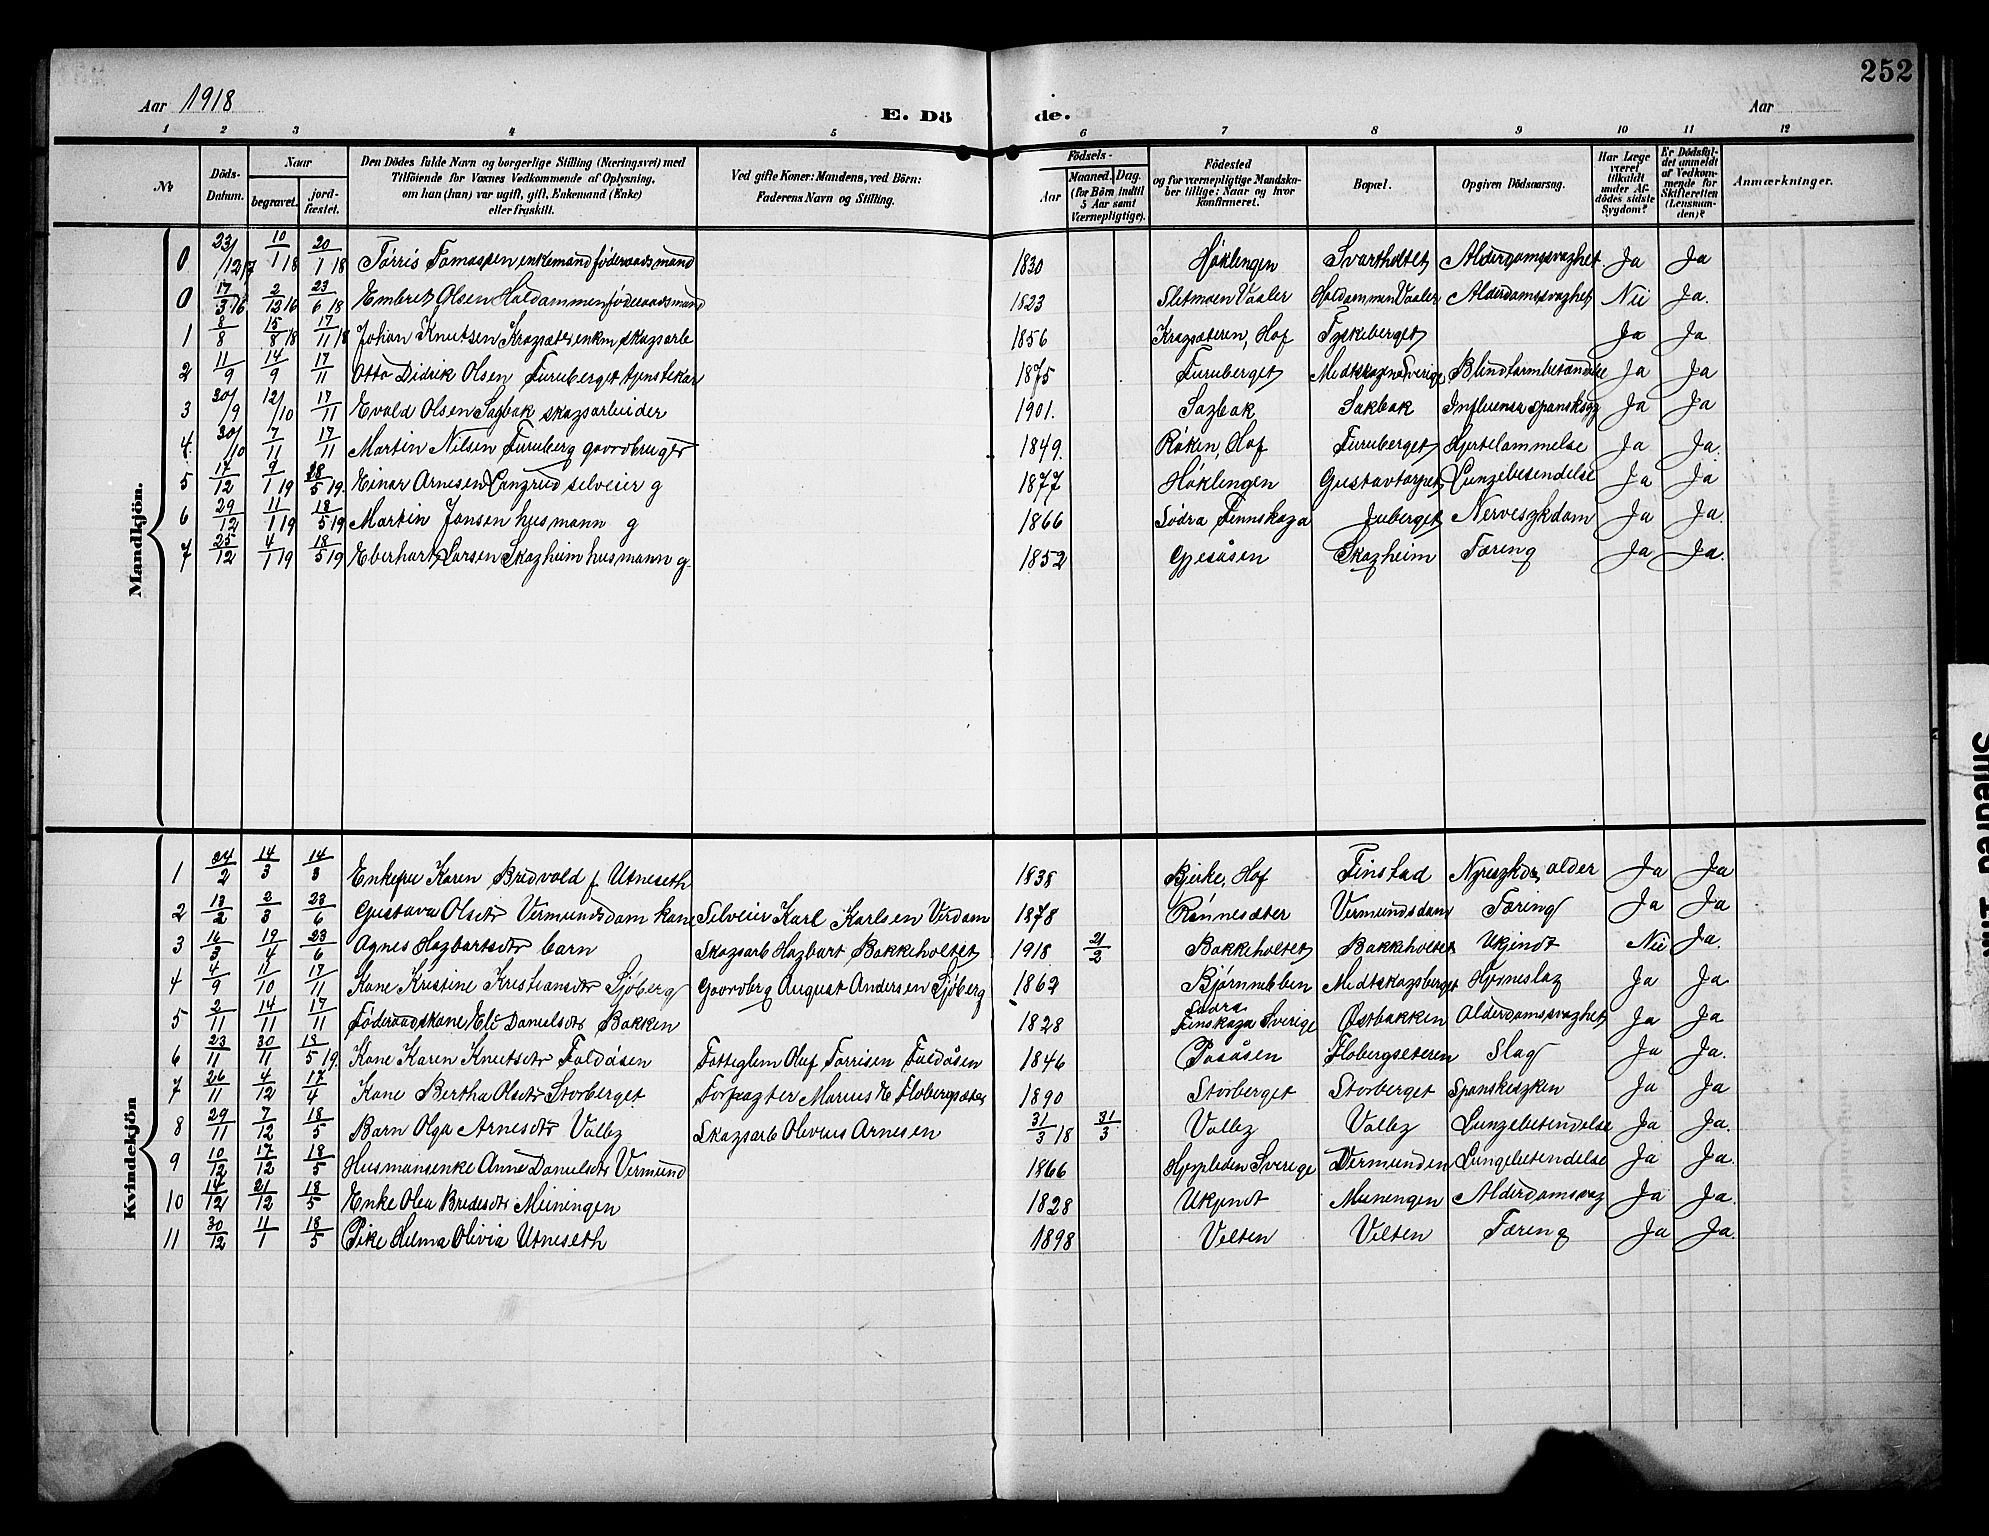 252
Aar 1918
E. Dö de.
Aar
1 2 3 4 5 6 7 8 9 10 11 12
№
Döds-Datum.
Naar
begravet.
jord-fæstet.
Den Dödes fulde Navn og borgerlige Stilling (Næringsvei) med Tilföiende for Voxnes Vedkommende af Oplysning, om han (hun) var ugift, gift, Enkemand (Enke) eller fraskilt.
Ved gifte Koner: Mandens, ved Börn: Faderens Navn og Stilling.
Födsels-
Aar
Maaned. Dag.
(for Börn indtil 5 Aar samt Værnepligtige).
Födested og for værnepligtige Mandska-ber tillige: Naar og hvor konfirmeret.
Bopæl.
Opgiven Dödsaarsag.
Har Læge været tilkaldt under Af-dödes sidste Sygdom?
Er Dödsfal-det anmeldt af Vedkom-mende for Skifteretten (Lensman-den)?
Anmærkninger.
Mandkjön.
0 23/12 17 10/1 18 20/1 18 Tørris Tomassen enkemand føderaadsmand 1830 Høklingen Svartholtet Alderdomssvaghet Ja Ja
0 17/3 16 2/12 16 23/6 18 Embret Olsen Holdammen føderaadsmand 1823 Sletmoen Vaaler Holdammen Vaaler Alderdomssvaghet Nei Ja.
1 8/8 15/8 18 17/11 18 Johan Knutsen Kragsæter enkm, skogsarb 1856 Kragsæteren, Hof Tyskeberget Ja Ja
2 11/9 14/9 17/11 Otto Didrik Olsen Furuberget tjenstekar 1875 Furuberget Medtskogen Sverige Blindtarmbetændelse Ja Ja
3 30/9 12/10 17/11 Evald Olsen Sagbak skogsarbeider 1901. Sagbak Sakbak Influensa spansksyg Ja Ja
4. 30/10 7/11 17/11 Martin Nilsen Furuberg gaardbruger 1849. Røken, Hof Furuberget Hjertelammelse Ja Ja.
5 17/12 9/1 19 28/5 19. Einar Arnesen Langrud selveier g 1877 Høklingen Gustavtorpet Lungebetendelse Ja Ja
6 29/12 11/1 19 18/5 19 Martin Jonsen husmann g 1866 Sødra Finnskoga Juberget Nervesykdom Ja Ja.
7 25/12 4/1 19 18/5 19 Eberhart Larsen Skogheim husmann g. 1852 Gjesåsen Skogheim Tæring Ja Ja.
Kvindekjön
1 24/2 14/3 14/3 Enkefru Karen Bredvold f Utneseth 1838 Bjerke, Hof Finstad Nyresykdo, alder Ja Ja
2 13/2 2/3 23/6 Gustava Olsdtr Vermundsdam kone Selveier Karl Karlsen Vrdam 1878 Rønnesæter Vermundsdam Tæring Ja Ja
3 16/3 19/4 23/6 Agnes Hagbartsdtr barn Skogsarb Hagbart Bakkeholtet 1918 21/2 Bakkeholtet Bakkeholtet Ukjendt Nei Ja.
4 4/9 11/10 17/11 Kone Kristine Kristiansdtr Sjøberg Gaardbrg August Andersen Sjøberg 1862 Bjørnnebben Medtskogsberget Hjerneslag Ja Ja
5 2/11 14/11 17/11 Føderaadskone Eli Danielsdtr Bakken 1828 Sødra Finskoga Sverige Østbakken Alderdomssvaghet Ja Ja
6 23/11 30/11 18/5 19. Kone Karen Knutsdtr Faldåsen Fattiglem Oluf Torrisen Faldåsen 1846 Posåsen Flobergseteren Slag Ja Ja.
7 26/11 4/12 17/4 Kone Bertha Olsdtr Storberget Forpagter Marius E Flobergsæter 1890 Storberget Storberget Spanskesyken Ja Ja
8 29/11 7/12 18/5 Barn Olga Arnesdtr Valby Skogsarb Oliveus Arnesen 31/3 18 31/3 Valby Valby Lungebetendelse Ja Ja.
9 10/12 17/12 18/5 Husmansenke Anne Danielsdtr Vermund 1866 Sverige Vermunden Lungebetendelse Ja Ja.
10 14/12 21/12 18/5 Enke Olea Bredesdtr Meiningen 1828 Ukjendt Meinengen Alderdomssvag Ja Ja.
11 30/12 11/1 18/5 Pike Helma Olivia Utneseth 1898 Velten Velten Tæring Ja Ja.